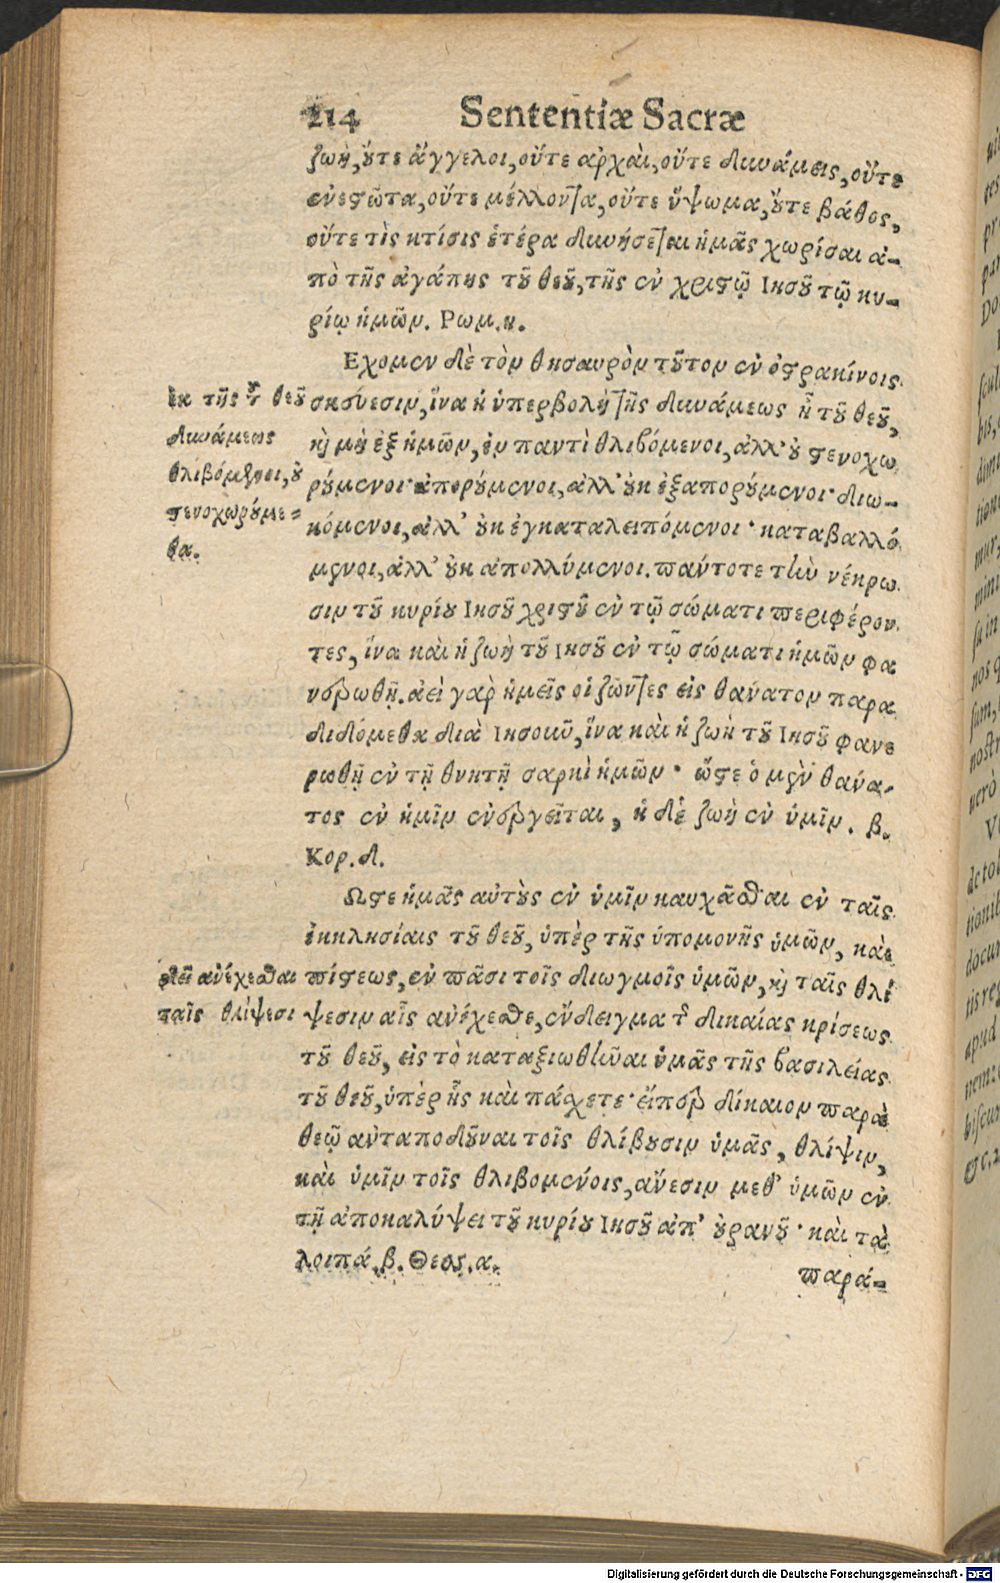 214 Sententiæ Sacræ
ζωὴ, ὔτε ἄγγελοι, οὔτε ἀρχαὶ, οὔτε δυνάμεις, οὔτε
ἐνεϛῶτα, οὔτε μέλλοντα, οὔτε ὕψωμα, ὔτε βάθος,
οὔτε τὶς κτίσις ἑτέρα δυνήσεται ἡμᾶς χωρίσαι ἀ-
πὸ τῆς ἀγάπης τοῦ θεοῦ, τῆς ἐν χριϛῷ Ιησοῦ τῷ κυ-
ρίῳ ἡμῶν. Ρωμ. η.
Εχομεν δὲ τὸν θησαυρὸν τοῦτον ἐν ὀϛρακίνοις
σκεύεσιν, ἵνα ἡ ὑπερβολὴ τῆς δυνάμεως ᾖ τοῦ θεοῦ,
καὶ μὴ ἐξ ἡμῶν, ἐν παντὶ θλιβόμενοι, ἀλλ’ οὐ ϛενοχω
ρούμενοι· ἀπορούμενοι, ἀλλ’ οὐκ ἐξαπορούμενοι· διω-
κόμενοι, ἀλλ’ οὐκ ἐγκαταλειπόμενοι· καταβαλλό
μενοι, ἀλλ’ οὐκ ἀπολλύμενοι. πάντοτε τὴν νέκρω
σιν τοῦ κυρίου Ιησοῦ χριϛοῦ ἐν τῷ σώματι περιφέρον
τες, ἵνα καὶ ἡ ζωὴ τοῦ Ιησοῦ ἐν τῷ σώματι ἡμῶν φα
νερωθῇ. ἀεὶ γὰρ ἡμεῖς οἱ ζῶντες εἰς θάνατον παρα
διδόμεθα διὰ Ιησοῦν, ἵνα καὶ ἡ ζωὴ τοῦ Ιησοῦ φανε
ρωθῇ ἐν τῇ θνητῇ σαρκὶ ἡμῶν· ὥϛε ὁ μὲν θάνα-
τος ἐν ἡμῖν ἐνεργεῖται, ἡ δὲ ζωὴ ἐν ὑμῖν. β.
Κορ. δ.
Ωϛε ἡμᾶς αὐτοὺς ἐν ὑμῖν καυχᾶσθαι ἐν ταῖς
ἐκκλησίαις τοῦ θεοῦ, ὑπὲρ τῆς ὑπομονῆς ὑμῶν, καὶ
πίϛεως, ἐν πᾶσι τοῖς διωγμοῖς ὑμῶν, καὶ ταῖς θλί
ψεσιν αἷς ἀνέχεσθε, ἔνδειγμα τῆς δικαίας κρίσεως
τοῦ θεοῦ, εἰς τὸ καταξιωθῆναι ὑμᾶς τῆς βασιλείας
τοῦ θεοῦ, ὑπὲρ ἧς καὶ πάσχετε· εἴπερ δίκαιον παρὰ
θεῷ ἀνταποδοῦναι τοῖς θλίβουσιν ὑμᾶς, θλίψιν,
καὶ ὑμῖν τοῖς θλιβομένοις, ἄνεσιν μεθ’ ὑμῶν ἐν
τῇ ἀποκαλύψει τοῦ κυρίου Ιησοῦ ἀπ’ οὐρανοῦ· καὶ τὰ
λοιπά. β. Θεσ. α.
παρά-
ἐκ τῆς τοῦ θεοῦ
δυνάμεως
θλιβόμενοι, οὐ
ϛενοχωρούμε-
θα.
δεῖ ἀνέχεσθαι
ταῖς θλίψεσι
Digitalisierung gefördert durch die Deutsche Forschungsgemeinschaft - DFG